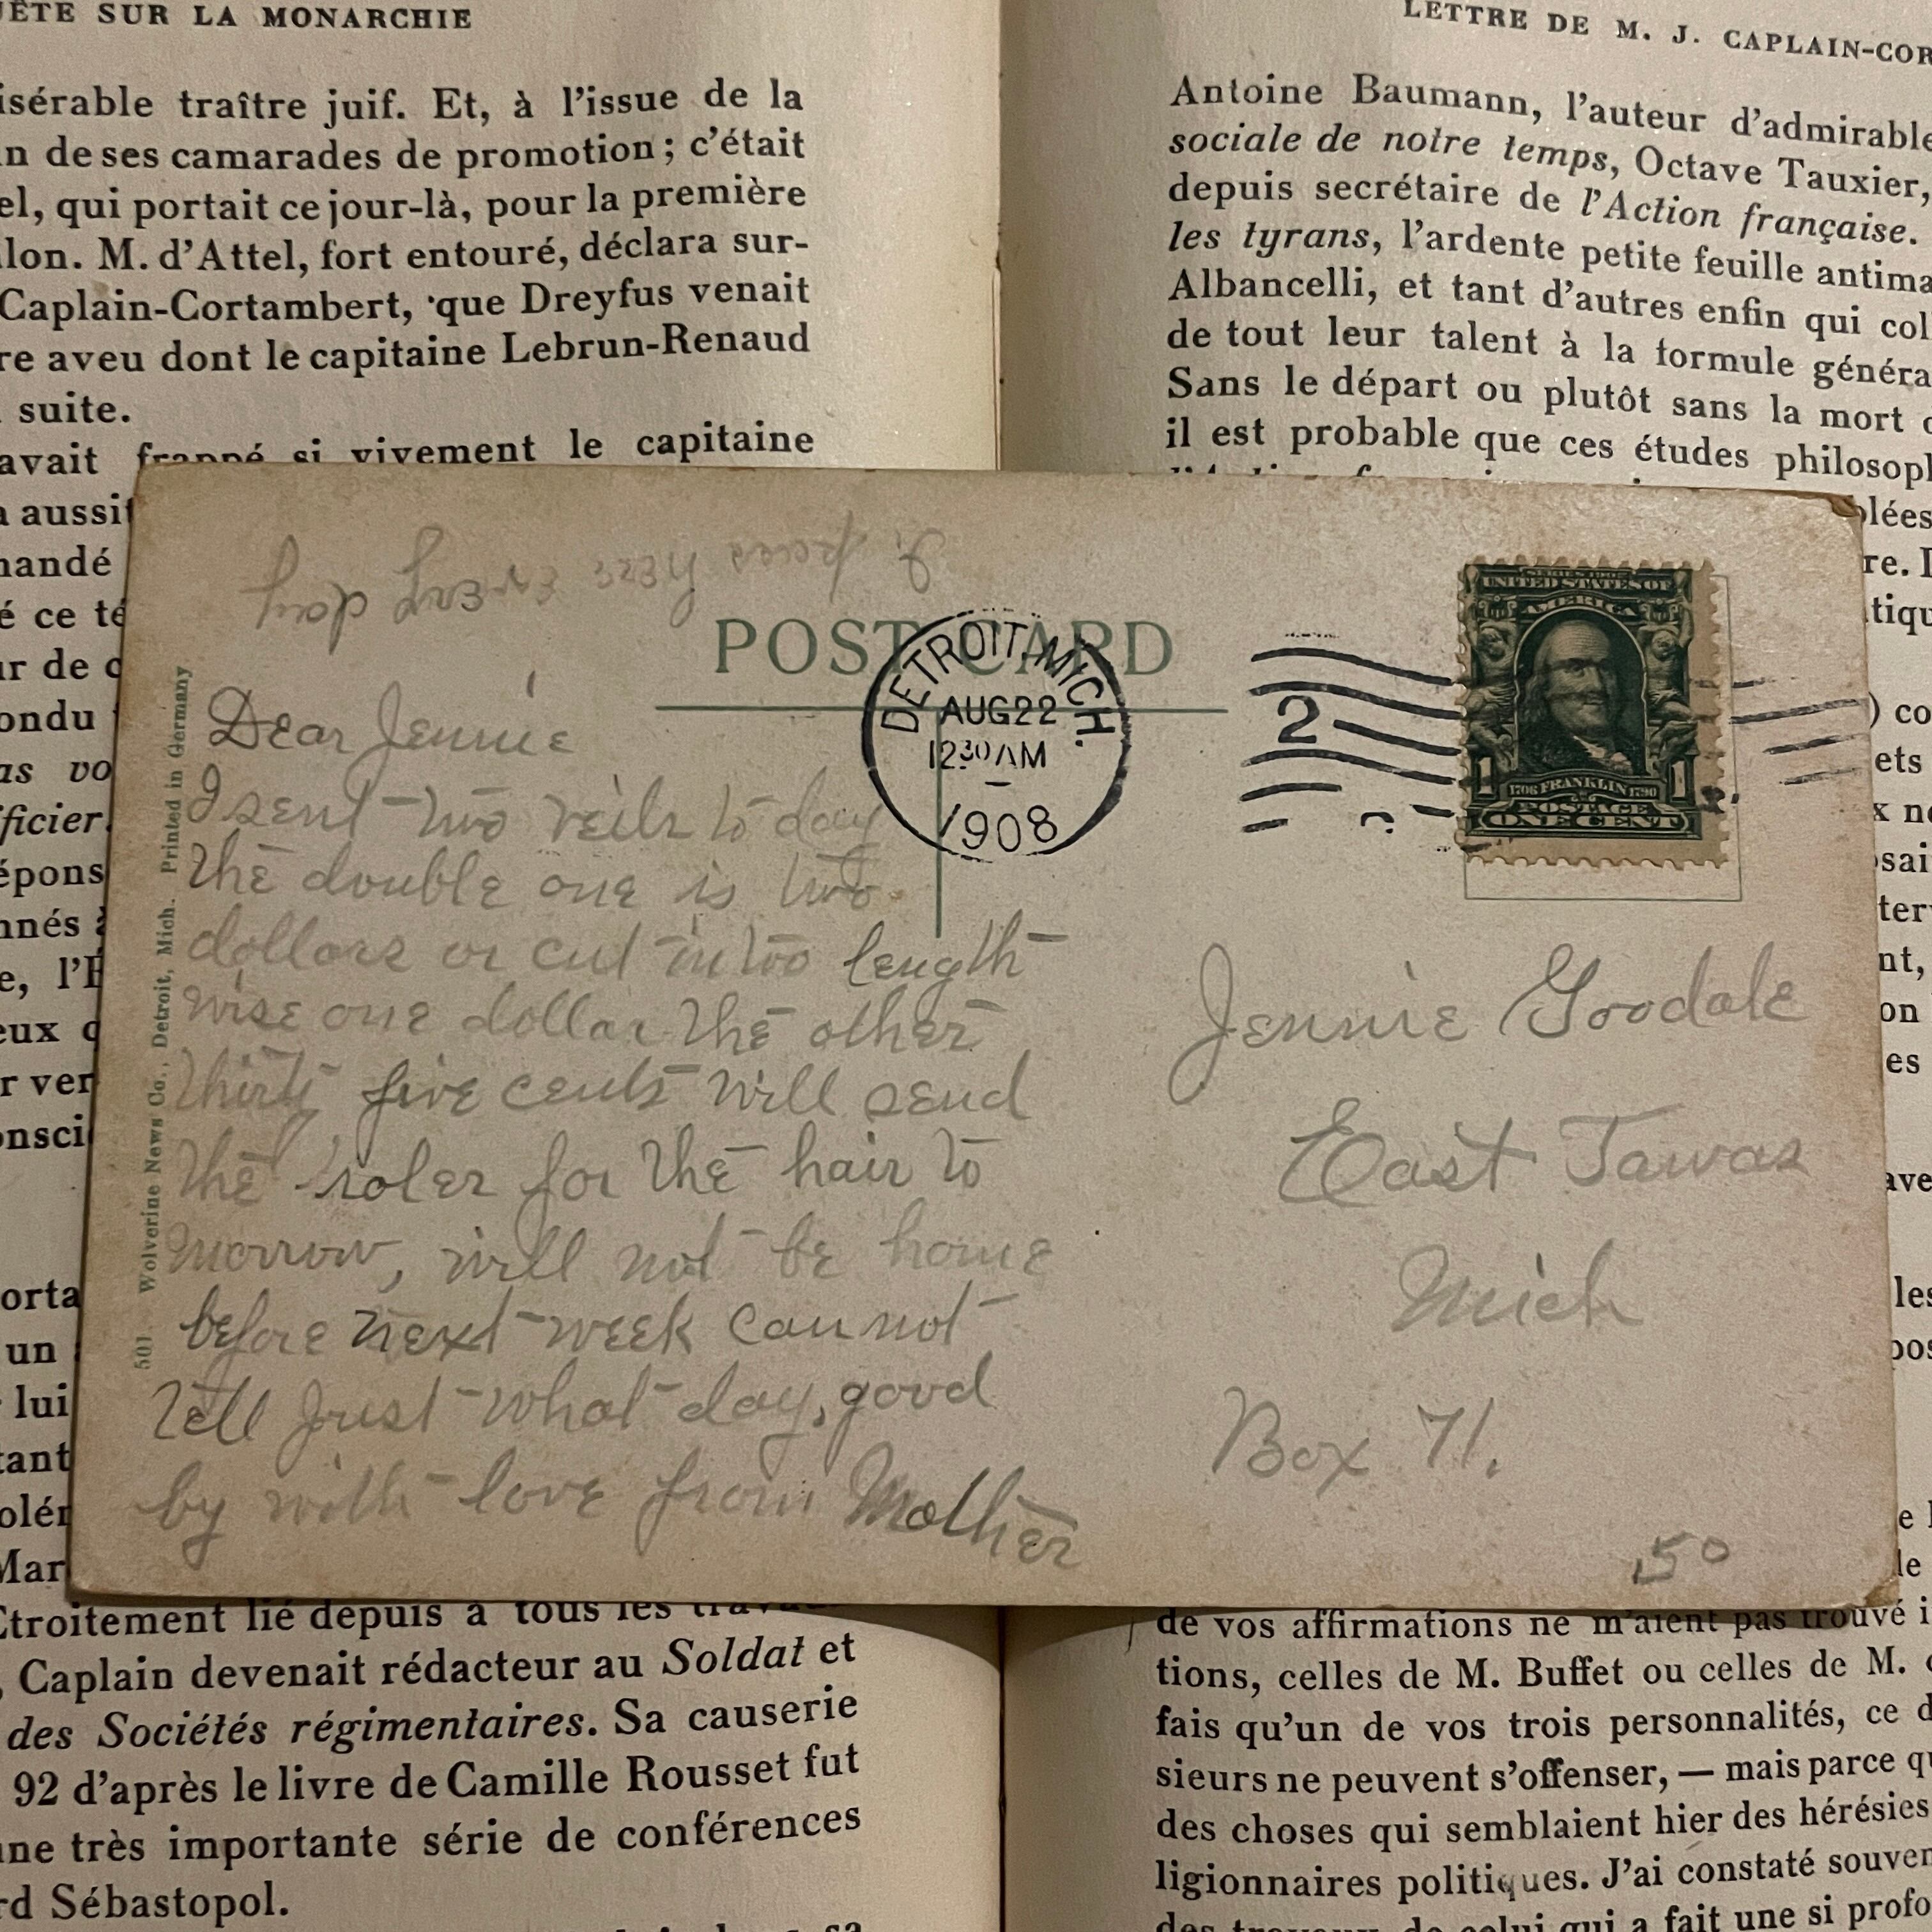 UÊTE SUR LA MONARCHIE
isérable traître juif. Et, à l'issue de la
n de ses camarades de promotion ; c'était
el, qui portait ce jour-là, pour la première
lon. M. d'Attel, fort entouré, déclara sur-
Caplain-Cortambert, que Dreyfus venait
re aveu dont le capitaine Lebrun-Renaud
suite.
avait frappé si vivement le capitaine
aussit
mandé
é ce té
ur de c
ondu
as vo
fficier.
épons
nnés à
e, l'É
eux
r ver
onsci
orta
un
lui
tant
olér
Mar
Étroitement lié depuis à tous les
, Caplain devenait rédacteur au Soldat et
des Sociétés régimentaires. Sa causerie
92 d'après le livre de Camille Rousset fut
une très importante série de conférences
rd Sébastopol.
LETTRE DE M. J. CAPLAIN-COR
Antoine Baumann, l'auteur d'admirable
sociale de notre temps, Octave Tauxier,
depuis secrétaire de l'Action française.
les tyrans, l'ardente petite feuille antima
Albancelli, et tant d'autres enfin qui col
de tout leur talent à la formule généra
Sans le départ ou plutôt sans la mort
il est probable que ces études philosoph
blées
re. I
tiqu
) co
ets
x n
sai
ter
nt,
on
es
ave
les
pos
e
le
de vos affirmations ne m'aient pas trouvé i
tions, celles de M. Buffet ou celles de M.
fais qu'un de vos trois personnalités, ce d
sieurs ne peuvent s'offenser, — mais parce qu
des choses qui semblaient hier des hérésies
ligionnaires politiques. J'ai constaté souven
des travaux de celui qui a fait une si profo
her every day
POST CARD
DETROIT, MICH.
AUG 22
12 30 AM
1908
2
SERIES 1902
UNITED STATES OF
AMERICA
1706 FRANKLIN 1790
POSTAGE
1 ONE CENT 1
501 Wolverine News Co., Detroit, Mich. Printed in Germany
Dear Jennie
I sent two veils to day
the double one is two
dollars or cut in too length
wise one dollar the other
thirty five cents will send
the roler for the hair to
morrow, will not be home
before next week can not
tell just what day, good
by with love from Mother
Jennie Goodale
East Tawas
Mich
Box 71.
50